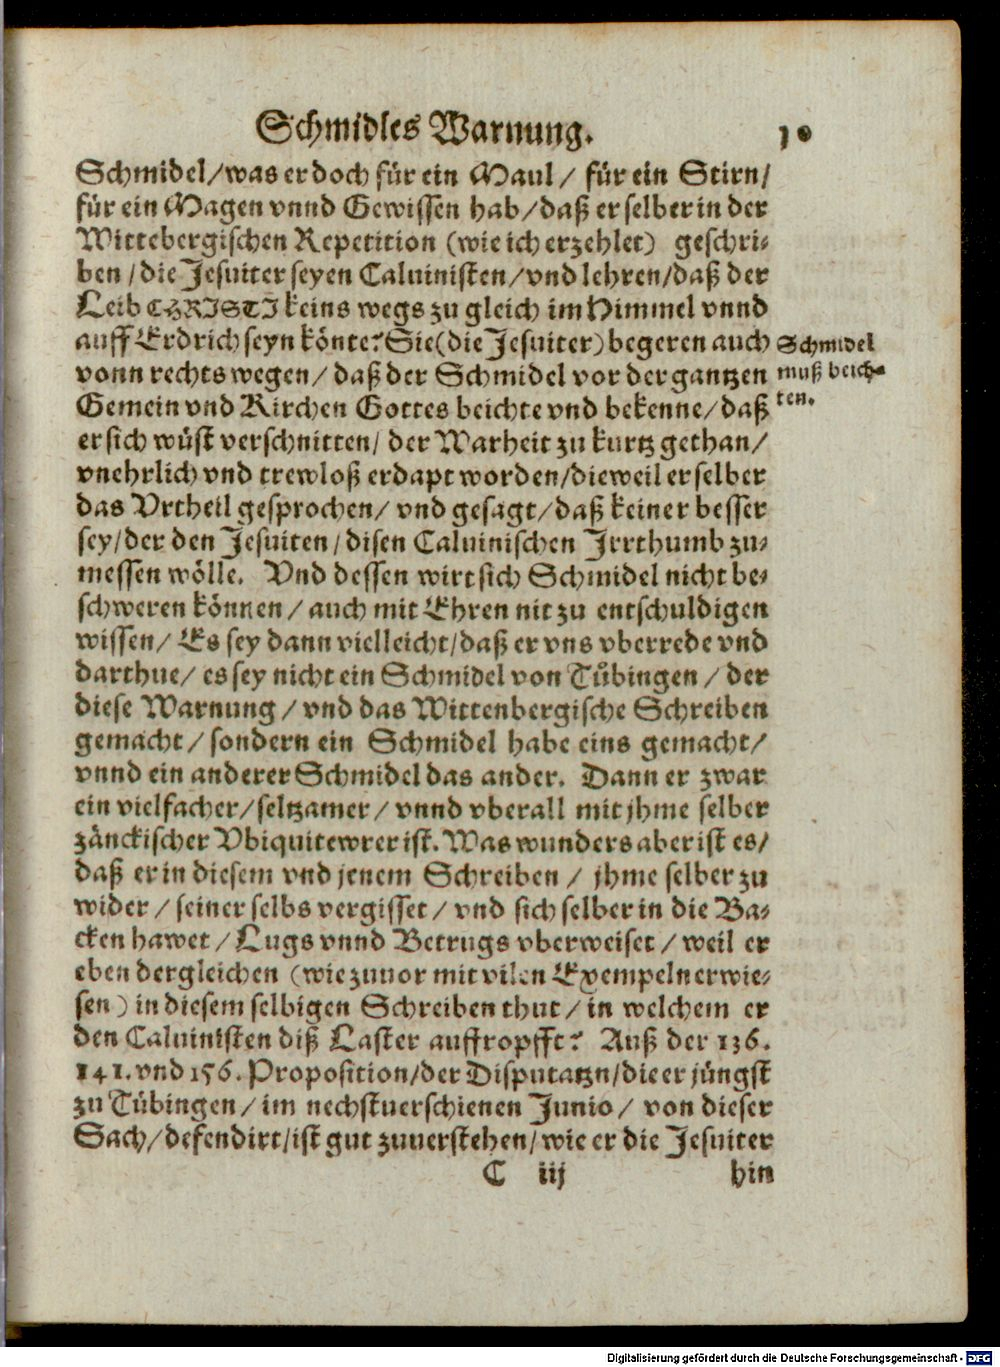 Schmidles Warnung. 10
Schmidel/was er doch für ein Maul / für ein Stirn/
für ein Magen vnnd Gewissen hab/daß er selber in der
Wittebergischen Repetition (wie ich erzehlet) geschri-
ben/die Jesuiter seyen Caluinisten/vnd lehren/daß der
Leib CHRISTI keins wegs zu gleich im Himmel vnnd
auff Erdrich seyn könte? Sie (die Jesuiter) begeren auch
vonn rechts wegen/ daß der Schmidel vor der gantzen
Gemein vnd Kirchen Gottes beichte vnd bekenne/daß
er sich wüst verschnitten/ der Warheit zu kurtz gethan/
vnehrlich vnd trewloß erdapt worden/dieweil er selber
das Vrtheil gesprochen/ vnd gesagt/daß keiner besser
sey/der den Jesuiten/disen Caluinischen Jrrthumb zu-
messen wölle. Vnd dessen wirt sich Schmidel nicht be-
schweren können/ auch mit Ehren nit zu entschuldigen
wissen/ Es sey dann vielleicht/daß er vns vberrede vnd
darthue/ es sey nicht ein Schmidel von Tübingen / der
diese Warnung / vnd das Wittenbergische Schreiben
gemacht/ sondern ein Schmidel habe eins gemacht/
vnnd ein anderer Schmidel das ander. Dann er zwar
ein vielfacher/seltzamer/ vnnd vberall mit jhme selber
zänckischer Vbiquitewrer ist. Was wunders aber ist es/
daß er in diesem vnd jenem Schreiben / jhme selber zu
wider / seiner selbs vergisset/ vnd sich selber in die Ba-
cken hawet / Lugs vnnd Betrugs vberweiset / weil er
eben dergleichen (wie zuuor mit vilen Exempeln erwie-
sen) in diesem selbigen Schreiben thut / in welchem er
den Caluinisten diß Laster auffropfft? Auß der 136.
141. vnd 156. Proposition/der Disputatzn/die er jüngst
zu Tübingen / im nechstuerschienen Junio/ von dieser
Sach/defendirt/ist gut zuuerstehen/wie er die Jesuiter
C iij hin
Schmidel
muß beich-
ten.
Digitalisierung gefördert durch die Deutsche Forschungsgemeinschaft - DFG